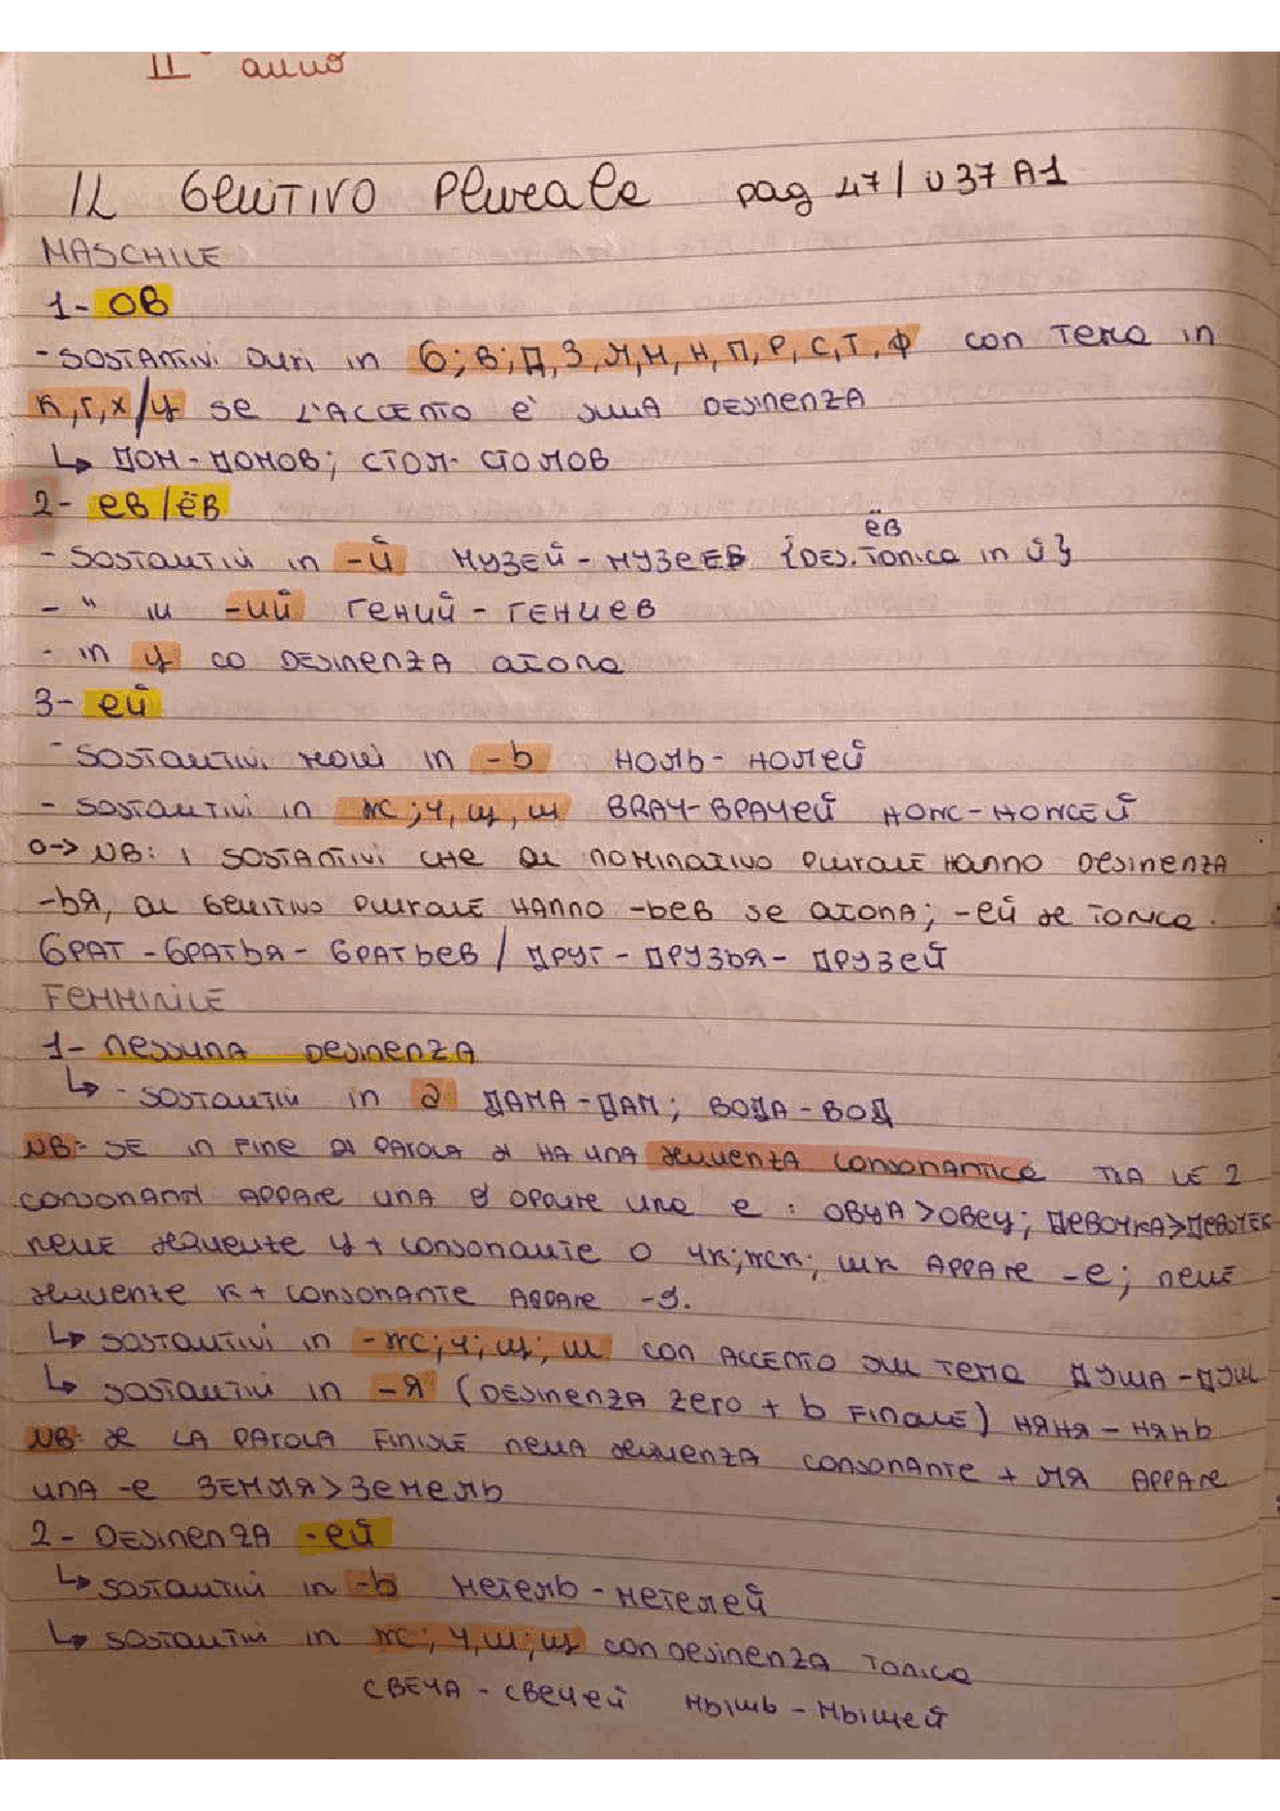 II° anno
IL GENITIVO PLURALE pag 47/ U37 A1
MASCHILE
1- ОВ
- SOSTANTIVI DURI in б; в; д, з, л, м, н, п, р, с, т, ф con Tema in
к, г, х/ц se L'ACCENTO e' SULLA DESINENZA
↳ ДОМ - ДОМОВ; СТОЛ - СТОЛОВ
2- ев/ёв
ёв
- SOSTANTIVI in -й МУЗЕЙ - МУЗЕЕВ {DES. Tonica in й}
- " in -ий ГЕНИЙ - ГЕНИЕВ
- in ц CO DESINENZA atona
3- ей
- SOSTANTIVI molli in -ь НОЛЬ - НОЛЕЙ
- SOSTANTIVI in ж; ч, щ, ш BRAЧ - ВРАЧЕЙ НОЖ - НОЖЕЙ
O-> NB: I SOSTANTIVI CHE AL NOMINATIVO PLURALE HANNO DESINENZA
-ья, AL GENITIVO PLURALE HANNO -ьев se ATONA; -ей se TONICA.
БРАТ - БРАТЬЯ - БРАТЬЕВ / ДРУГ - ДРУЗЬЯ - ДРУЗЕЙ
FEMMINILE
1- nessuna DESINENZA
↳ - SOSTANTIVI in a ДАМА - ДАМ; ВОДА - ВОД
NB: SE in FINE DI PAROLA SI HA UNA sequenza CONSONANTICA TRA LE 2
CONSONANTI APPARE una o oppure una e : ОВЦА > ОВЕЦ; ДЕВОЧКА > ДЕВОЧЕК
nelle sequenze ц + consonante o чк; жк; шк APPARE -e; nelle
sequenze к + consonante APPARE -o.
↳ SOSTANTIVI in -ж; ч; щ; ш con ACCENTO SUL TEMA ДУША - ДУШ
↳ SOSTANTIVI in -Я (DESINENZA ZERO + ь FINALE) НЯНЯ - НЯНЬ
NB: SE LA PAROLA FINISCE nella sequenza CONSONANTE + ЛЯ APPARE
una -e ЗЕМЛЯ > ЗЕМЕЛЬ
2- DESINENZA -ей
↳ SOSTANTIVI in -ь МЕТЕЛЬ - МЕТЕЛЕЙ
↳ SOSTANTIVI in ж; ч, ш; щ con DESINENZA TONICA
СВЕЧА - СВЕЧЕЙ МЫШЬ - МЫШЕЙ